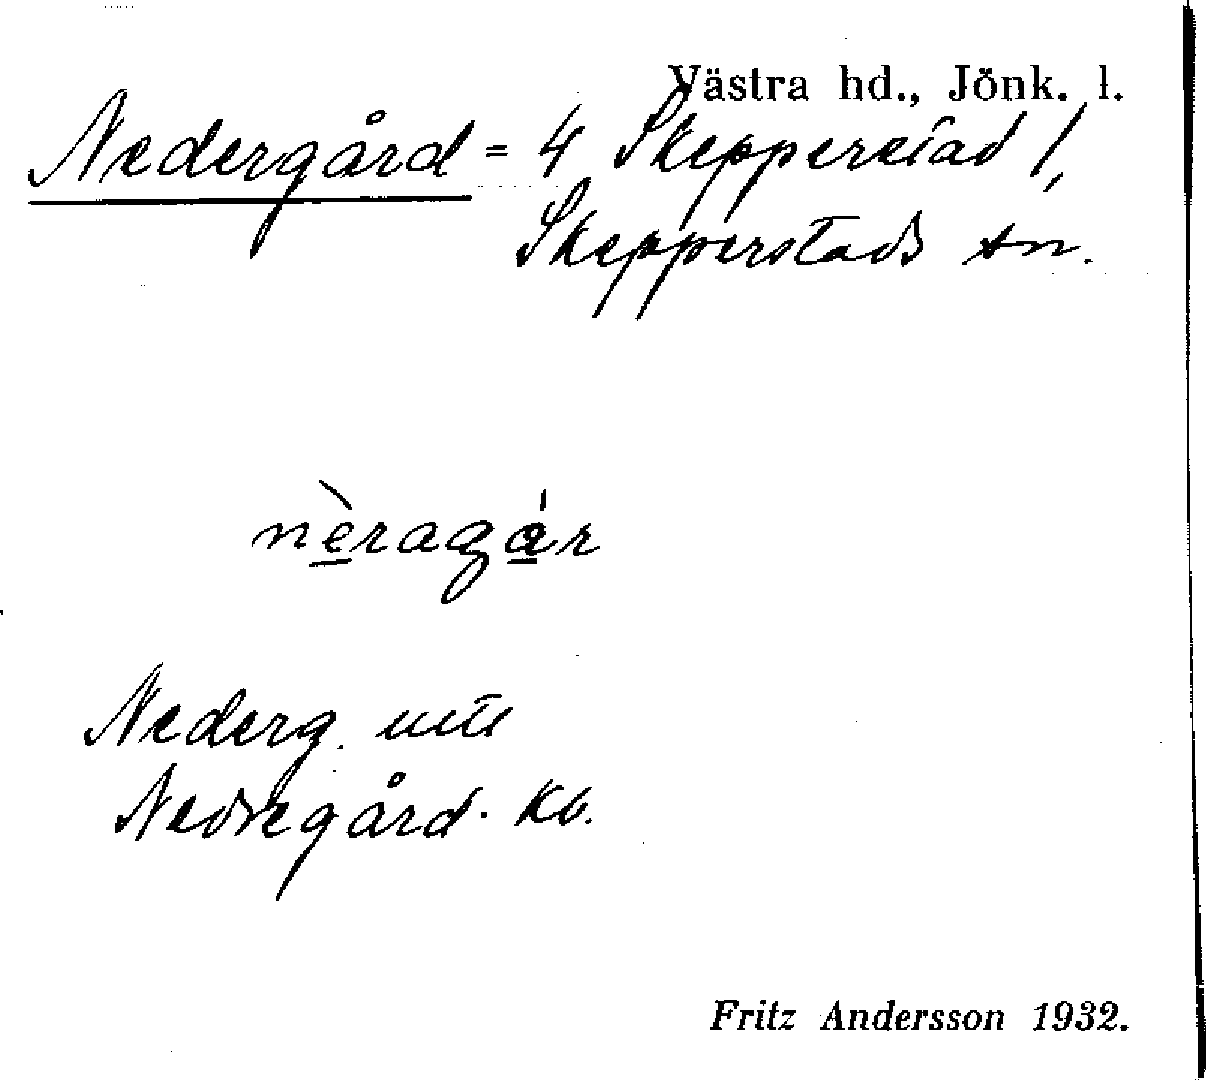 Västra hd., Jönk. l.
Nedergård = 4 Skepperstad 1,
Skepperstads sn.
nèragár
Nederg.
Nedregård. Kb.
Fritz Andersson 1932.